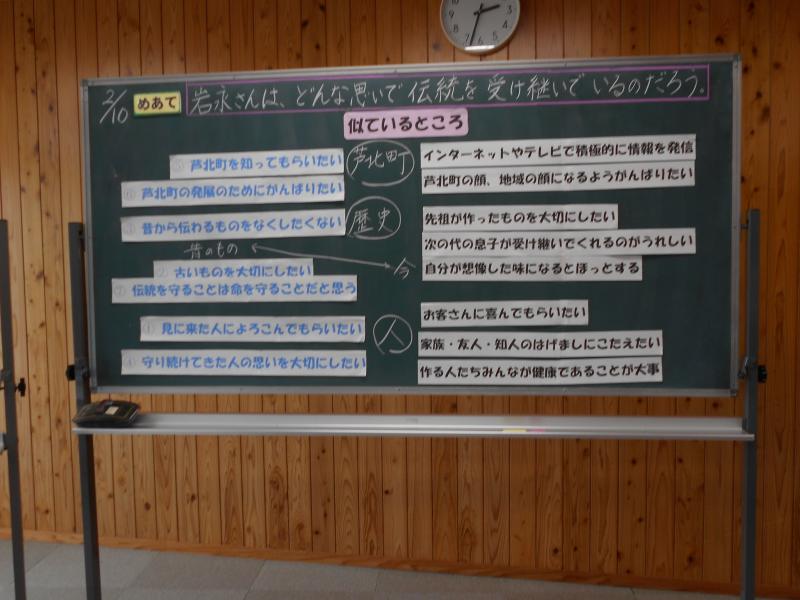 2/10 めあて 岩永さんは、どんな思いで伝統を受け継いでいるのだろう。
似ているところ
芦北町
⑤ 芦北町を知ってもらいたい
⑥ 芦北町の発展のためにがんばりたい
インターネットやテレビで積極的に情報を発信
芦北町の顔、地域の顔になるようがんばりたい
歴史
③ 昔から伝わるものをなくしたくない
昔のもの
② 古いものを大切にしたい
⑦ 伝統を守ることは命を守ることだと思う
先祖が作ったものを大切にしたい
次の代の息子が受け継いでくれるのがうれしい
今
自分が想像した味になるとほっとする
人
① 見に来た人によろこんでもらいたい
④ 守り続けてきた人の思いを大切にしたい
お客さんに喜んでもらいたい
家族・友人・知人のはげましにこたえたい
作る人たちみんなが健康であることが大事
12
2
3
4
5
6